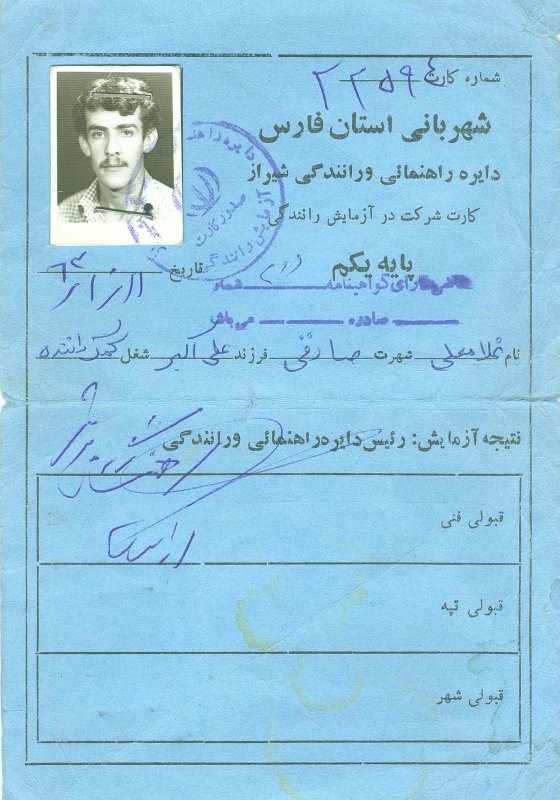 شماره کارت ۲۲۵۹۴
شهربانی استان فارس
دایره راهنمائی ورانندگی شیراز
کارت شرکت در آزمایش رانندگی
پایه یکم دوم تاریخ ۶۳
دارای گواهینامه شماره
صادره می باشد
نام غلامعلی شهرت صادقی فرزند علی اکبر شغل کمک راننده
نتیجه آزمایش: رئیس دایره راهنمائی ورانندگی
قبولی فنی
قبولی تپه
قبولی شهر
دایره راهنمائی
صدور کارت
آزمایش رانندگی